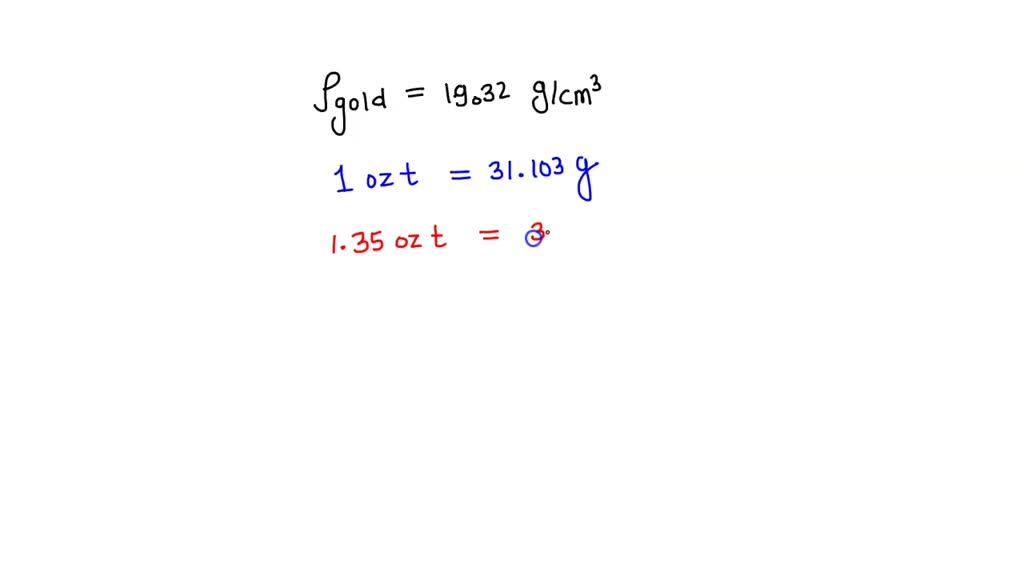 ρgold = 19.32 g/cm³
1 oz t = 31.103 g
1.35 oz t = 3.